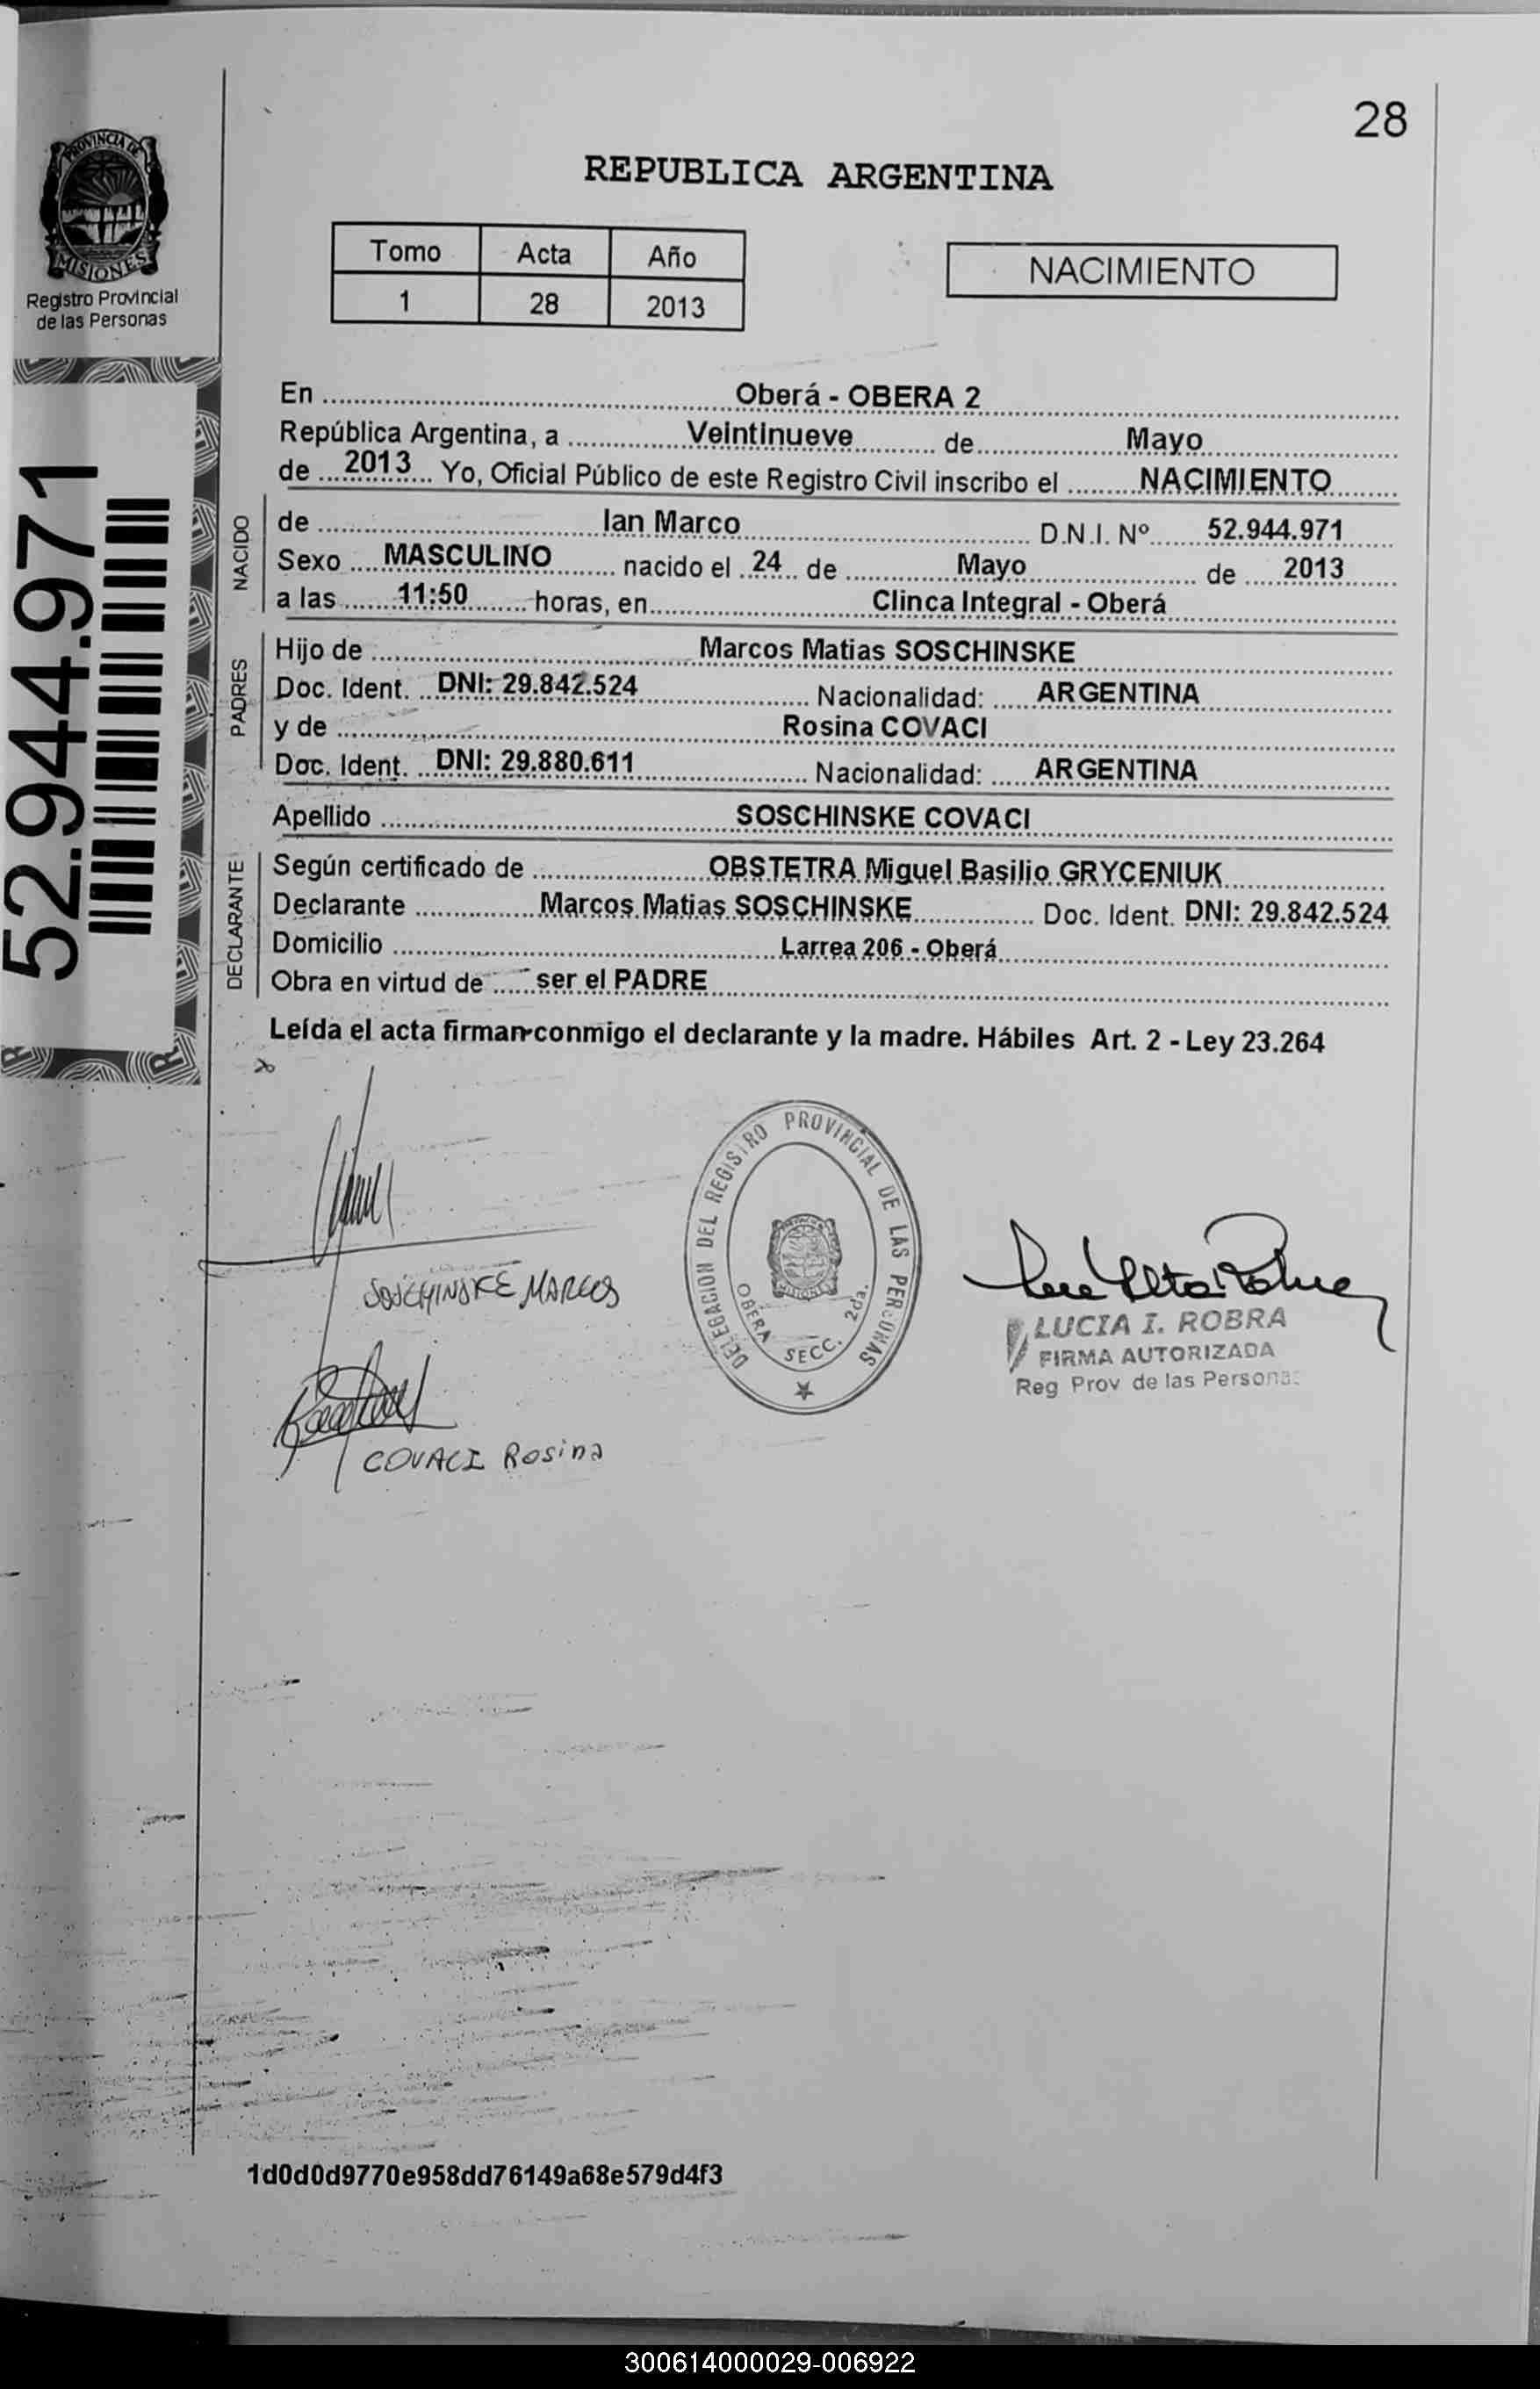 28
PROVINCIA DE
MISIONES
Registro Provincial
de las Personas
REPUBLICA ARGENTINA
Tomo Acta Año
1 28 2013
NACIMIENTO
52.944.971
En Oberá - OBERA 2
República Argentina, a Veintinueve de Mayo
de 2013 Yo, Oficial Público de este Registro Civil inscribo el NACIMIENTO
NACIDO
de Ian Marco D.N.I. Nº 52.944.971
Sexo MASCULINO nacido el 24 de Mayo de 2013
a las 11:50 horas, en Clinca Integral - Oberá
PADRES
Hijo de Marcos Matias SOSCHINSKE
Doc. Ident. DNI: 29.842.524 Nacionalidad: ARGENTINA
y de Rosina COVACI
Doc. Ident. DNI: 29.880.611 Nacionalidad: ARGENTINA
Apellido SOSCHINSKE COVACI
DECLARANTE
Según certificado de OBSTETRA Miguel Basilio GRYCENIUK
Declarante Marcos Matias SOSCHINSKE Doc. Ident. DNI: 29.842.524
Domicilio Larrea 206 - Oberá
Obra en virtud de ser el PADRE
Leída el acta firman conmigo el declarante y la madre. Hábiles Art. 2 - Ley 23.264
SOSCHINSKE MARCOS
COVACI Rosina
DELEGACION DEL REGISTRO PROVINCIAL DE LAS PERSONAS
OBERA SECC. 2da.
MISIONES
LUCIA I. ROBRA
FIRMA AUTORIZADA
Reg Prov de las Personas
1d0d0d9770e958dd76149a68e579d4f3
300614000029-006922